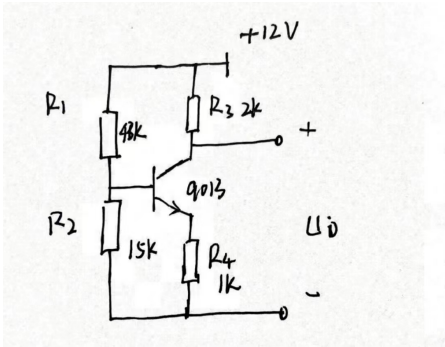 +12V
R1
43K
R3 2K
+
9013
R2
15K
R4
1K
Uo
-